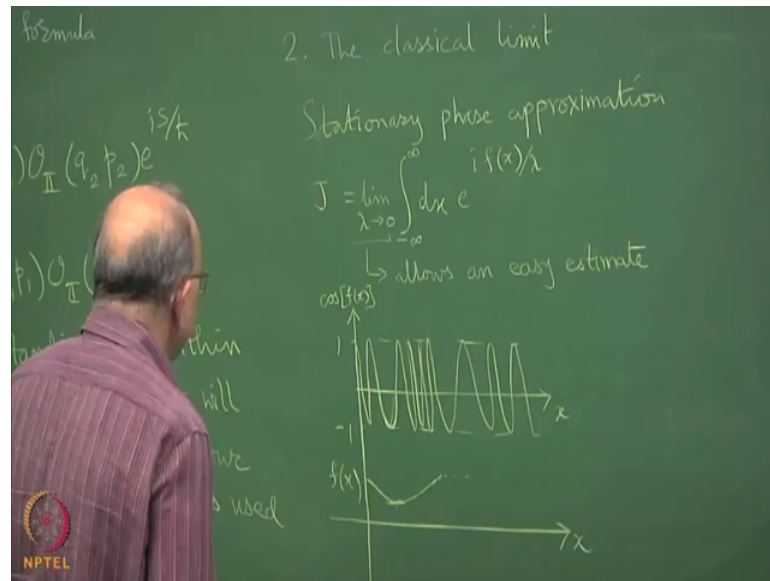 formula
is/ħ
)O_II (q_2 p_2) e
p_1) O_II (
within
will
used
2. The classical limit
Stationary phase approximation
J = lim_{λ→0} ∫_{-∞}^{∞} dx e^{i f(x)/λ}
↳ allows an easy estimate
cos[f(x)]
1
x
-1
f(x)
...
x
NPTEL